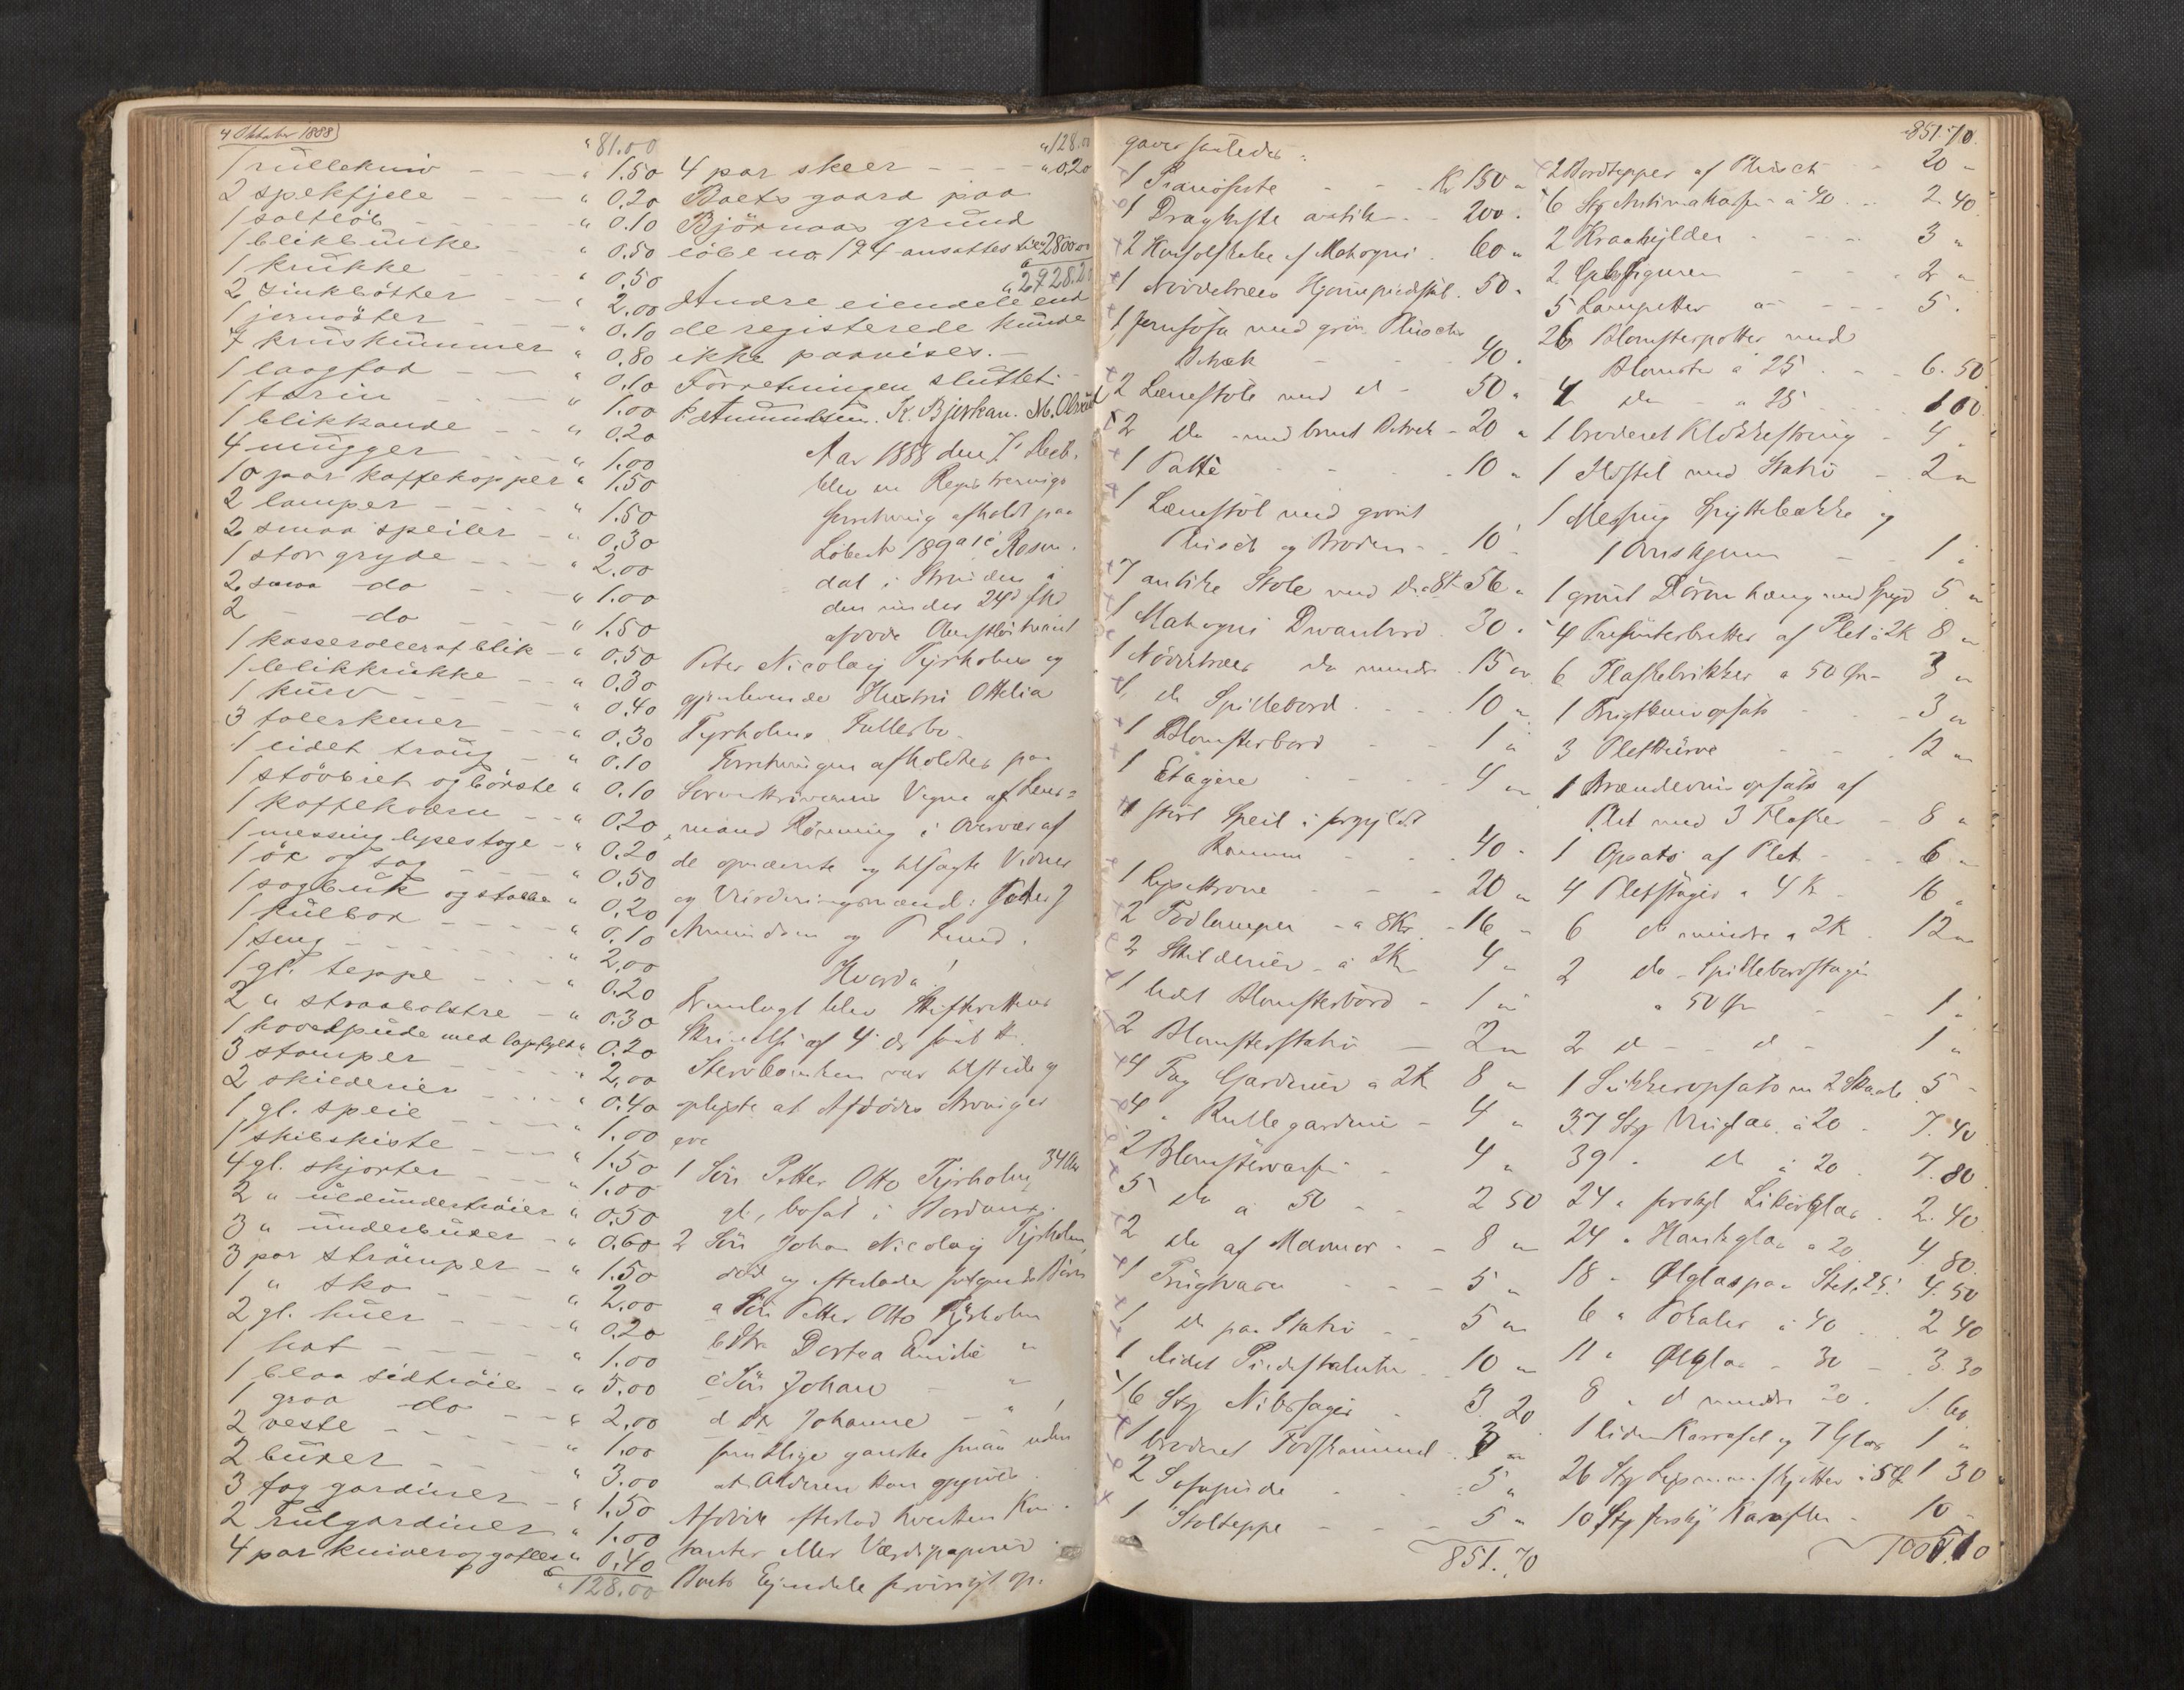 4 Oktober 1888
" 81.00
1 rullekniv " 1.50
2 spekfjele " 0.20
1 saltløb " 0.10
1 blikbøtte " 0.50
1 krukke " 0.50
2 zinkbøtter " 2.00
1 jernøster " 0.10
7 kruskummer " 0.80
1 laagfad " 0.10
1 tarin " 1.00
1 blikkande " 0.20
4 mugger " 1.00
10 par kaffekopper " 1.50
2 lamper " 1.50
2 smaa speiler " 0.30
1 stor gryde " 2.00
2 smaa do " 1.00
2 - do " 1.50
1 kasserolle af blik " 0.50
1 blikkrukke " 0.30
1 kurv " 0.40
3 talerkener " 0.30
1 lidet traug " 0.10
1 støvbret og børste " 0.10
1 kaffekværn " 0.20
1 messing lysestage " 0.20
1 øx og sag " 0.50
1 sagbuk og stabbe " 0.20
1 kulbox " 0.10
1 seng " 2.00
1 gl. teppe " 0.20
2 " straabolstre " 0.30
1 hovedpude med lagen " 0.20
3 stamper " 2.00
2 skilderier " 0.40
1 gl. speil " 1.00
1 skibskiste " 1.50
4 gl. skjorter " 1.00
2 " uldundertrøier " 0.50
3 " underbuxer " 0.60
3 par strømper " 1.50
1 " sko " 2.00
2 gl. huer " 0.20
1 hat " 1.00
1 blaa sidtrøie " 5.00
1 graa do " 2.00
2 veste " 1.00
2 buxer " 3.00
3 fag gardiner " 1.50
2 rulgardiner " 1.00
4 par kniver og gafler " 0.40
" 128.00
" 128.00
4 par skeer " 0.20
Boets gaard paa
Bjørnaas grund
løbe no 194 ansattes til " 2800.00
" 2928.20
Andre eiendele end
de registerede kunde
ikke paavises.
Forretningen sluttet.
P. Amundsen. K. Bjerkan. M. Olsen
Aar 1888 den 7de Decb.
blev en Registrerings
forretning afholdt paa
Løbenr 189a1c Rosen-
dal i Strinden i
den under 24d f. M.
afdøde Oberstløitnant
Peter Nicolay Tyrholms og
gjenlevende Hustru Ottilia
Tyrholms Fællesbo.
Forretningen afholdtes paa
Sorenskriverens Vegne af Lens-
mand Rønning i Overvær af
de opnævnte og tilsagte Vidner
og Vurderingsmænd: Peter J
Amundsen og P Lund.
Hvorda!
Fremlagt blev Skifterettens
Skrivelse af 4 ds
Stervboenken var tilstede og
oplyste at Afdødes Arvinger
ere
1 Søn Petter Otto Tyrholm, 34 Aar
gl., bosat i
2 Søn Johan Nicolay Tyrholm,
død og efterlader følgende Børn
a Søn Petter Otto Tyrholm
b Dtr Dortea Emilie "
c Søn Johan "
d Dtr Johanne "
samtlige ganske smaa uden
at Alderen kan opgives.
Afdøde efterlod hverken Kon-
tanter eller Værdipapirer.
Boets Eiendele forøvrigt op-
gaves saaledes:
1 Pianoforte Kr 150 "
1 Dragkiste antik 200 "
2 Konsolskabe af Mahogni 60 "
1 Nøddetræes Hjørnepiedestal 50 "
1 Jernsofa med grøn Pluschs
Betræk 40 "
2 Lænestole med do 50 "
2 do med brunt Betræk 20 "
1 Patte 10 "
1 Lænestol med grønt
Plusch og Broderi 10 "
7 antike Stole med do a 8 Kr 56 "
1 Mahogni Divanbord 30 "
1 Nøddetræes do mindre 15 "
1 do Spillebord 10 "
1 Blomsterbord 1 "
1 Etagere 4 "
1 stort Speil i forgyldt
Ramme 40 "
1 Lysekrone 20 "
2 Bordlamper a 8 Kr 16 "
2 Skilderier a 2 Kr 4 "
1 lidet Blomsterbord 1 "
2 Blomsterstativ 2 "
4 Fag Gardiner a 2 Kr 8 "
4 " Rullegardiner 4 "
2 Blomstervaser 4 "
5 do a 50 2 50
2 do af Marmor 8 "
1 Frugtvase 5 "
1 do paa Stativ 5 "
1 lidet Piedestaluhr 10 "
16 Stk Nibssager 3 20
1 broderet Fodskammel 3 "
2 Sofapuder 5 "
1 Stolteppe 5 "
851.70
851.70
2 Bordtepper af Plusch 20 "
6 Stk Antimakasser a 40 2.40
2 Kraahylder 3 "
2 Gibsfigurer 2 "
5 Lampetter 5 "
26 Blomsterpotter med
Blomster a 25 6.50
4 do a 25 1 00
1 broderet Klokkestræng 4 "
1 Ildstel med Stativ 2 "
1 Messing Spyttebakke og
1 1 "
1 grønt Dørom hæng med 5 "
4 Presenterbretter af Plet a 2 Kr 8 "
6 Flaskebrikker a 50 Øre 3 "
1 Frugtknivopsats 3 "
3 Pletkurve 12 "
1 Brændevinsopsats af
Plet med 3 Flasker 8 "
1 Opsats af Plet 6 "
4 Pletstager a 4 Kr 16 "
6 do mindre a 2 Kr 12 "
2 do Spillebordstager
a 50 Øre 1 "
2 do do 1 "
1 Sukkeropsats m 2 Skaale 5 "
37 Stk Vinglas a 20 7.40
39 " do a 20 7.80
24 " forskj Likørglas 2.40
24 " Hankeglas a 20 4.80
18 " Ølglas paa Stet a 25 4.50
6 " Pokaler a 40 2 40
11 " Ølglas a 30 3.30
8 " do mindre 20 1.60
1 liden Karaffel og 7 Glas 1 "
26 Stk Lysemanskjetter a 5 Ø 1 30
10 Stk forskj Karafler 10 "